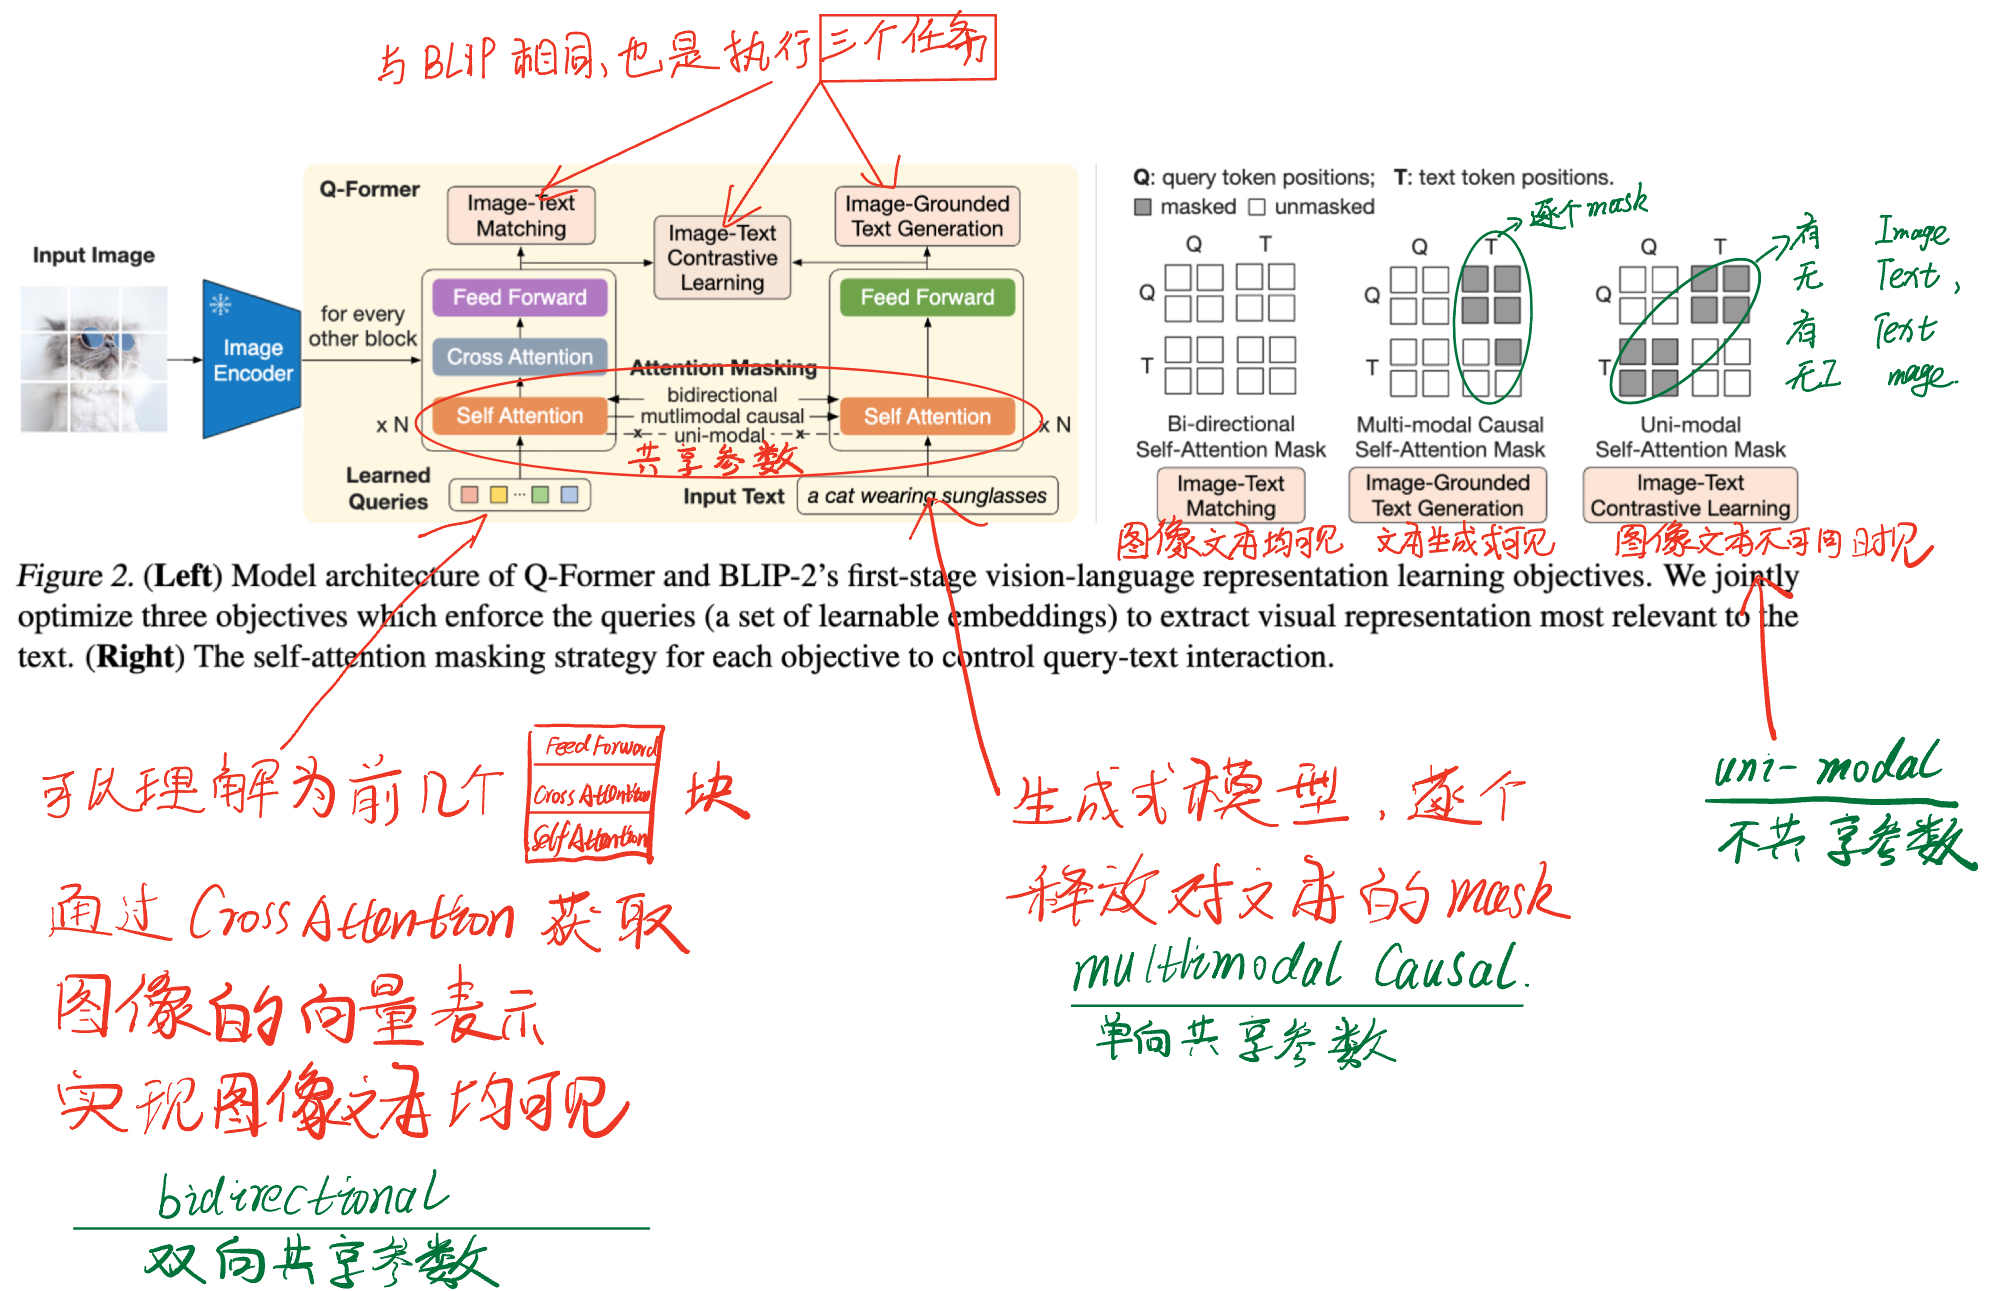 与BLIP相同、也是执行三个任务
Q-Former
Image-Text
Matching
Image-Text
Contrastive
Learning
Image-Grounded
Text Generation
Input Image
Image
Encoder
for every
other block
Feed Forward
Cross Attention
Self Attention
x N
Attention Masking
bidirectional
mutlimodal causal
uni-modal
共享参数
Feed Forward
Self Attention
x N
Learned
Queries
...
Input Text
a cat wearing sunglasses
Q: query token positions; T: text token positions.
masked unmasked
逐个mask
Q T
Q
T
Bi-directional
Self-Attention Mask
Image-Text
Matching
图像文本均可见
Q T
Q
T
Multi-modal Causal
Self-Attention Mask
Image-Grounded
Text Generation
文本生成式可见
Q T
Q
T
Uni-modal
Self-Attention Mask
Image-Text
Contrastive Learning
图像文本不可同时见
有 Image
无 Text,
有 Text
无Image.
Figure 2. (Left) Model architecture of Q-Former and BLIP-2's first-stage vision-language representation learning objectives. We jointly
optimize three objectives which enforce the queries (a set of learnable embeddings) to extract visual representation most relevant to the
text. (Right) The self-attention masking strategy for each objective to control query-text interaction.
可以理解为前几个
Feed Forward
Cross Attention
Self Attention
块
通过Cross Attention获取
图像的向量表示
实现图像文本均可见
bidirectional
双向共享参数
生成式模型,逐个
释放对文本的mask
multimodal Causal.
单向共享参数
uni-modal
不共享参数